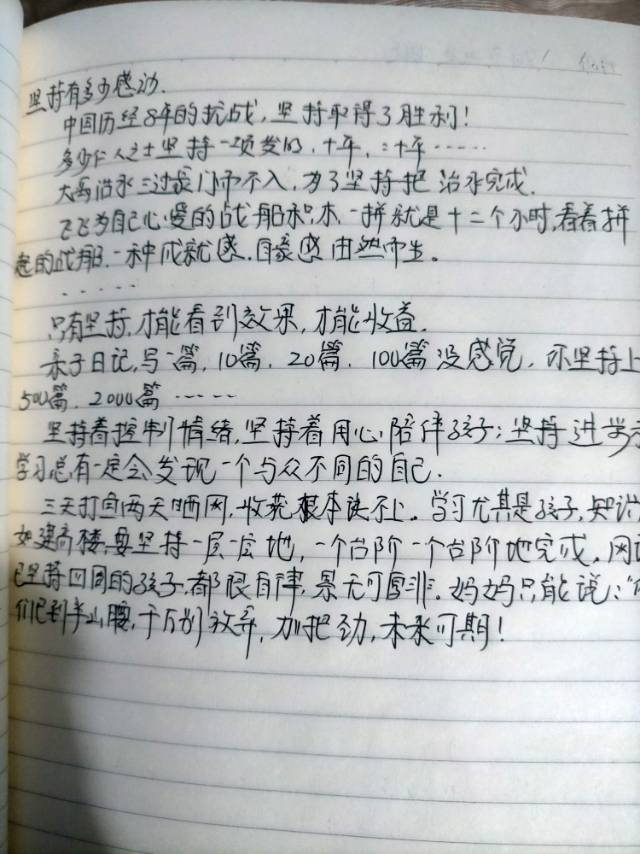 坚持有多少感动.
中国历经8年的抗战,坚持取得了胜利!
多少仁人志士坚持一项发明,十年,二十年……
大禹治水三过家门而不入,为了坚持把治水完成.
飞飞为自己心爱的战船积木一拼就是十二个小时,看着拼
起的战船.一种成就感.自豪感由然而生。
……
只有坚持,才能看到效果,才能收益.
亲子日记,写一篇,10篇,20篇,100篇没感觉,你坚持上
500篇.2000篇……
坚持着控制情绪,坚持着用心陪伴孩子;坚持进步
学习总有一定会发现一个与众不同的自己.
三天打鱼两天晒网,收获根本谈不上.学习尤其是孩子,知识
如建高楼,要坚持一层一层地,一个台阶一个台阶地完成.网
已坚持四周的孩子,都很自律,是无可厚非.妈妈只能说:"你
们已到半山腰,千万别放弃,加把劲,未来可期!